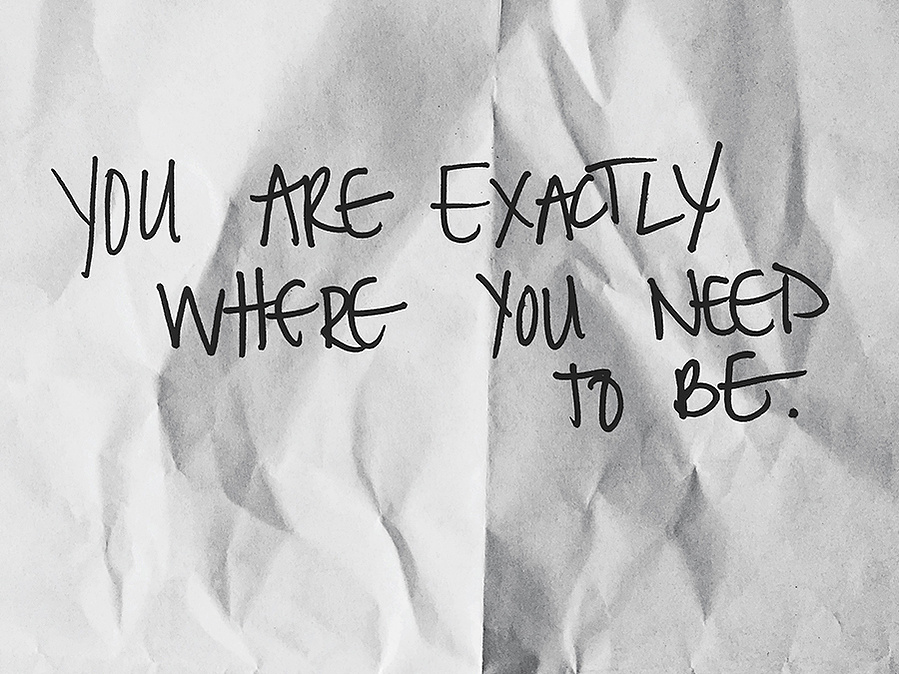 YOU ARE EXACTLY
WHERE YOU NEED
TO BE.